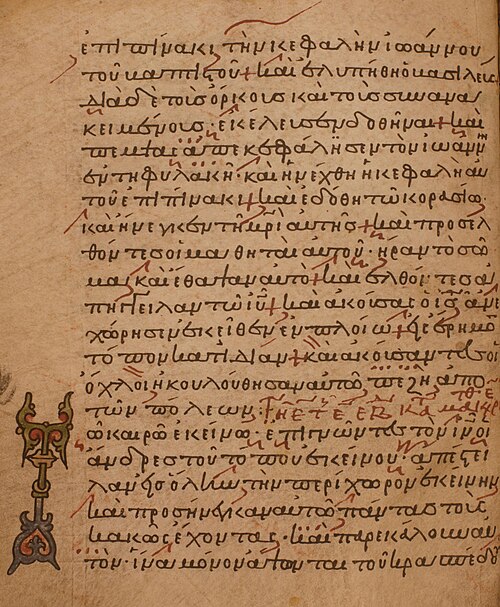 ἐπὶ πίνακι, τὴν κεφαλὴν ἰωάννου
τοῦ βαπτιστοῦ + καὶ ἐλυπήθη ὁ βασιλεύς
διὰ δὲ τοὺς ὅρκους καὶ τοὺς συνανα
κειμένους· ἐκέλευσεν δοθῆναι + καὶ
πέμψας ἀπεκεφάλησεν τὸν ἰωάννην
ἐν τῇ φυλακῇ· καὶ ἠνέχθη ἡ κεφαλὴ αὐ
τοῦ ἐπὶ πίνακι + καὶ ἐδόθη τῷ κορασίῳ
καὶ ἤνεγκεν τῇ μρὶ αὐτῆς + καὶ προσελ
θόντες οἱ μαθηταὶ αὐτοῦ· ἦραν τὸ σῶ
μα καὶ ἔθαψαν αὐτό + καὶ ἐλθόντες ἀ
πήγγειλαν τῷ ιῦ + καὶ ἀκούσας ὁ ις ἀνε
χώρησεν ἐκεῖθεν ἐν πλοίῳ + εἰς ἔρημον
τόπον κατιδίαν + καὶ ἀκούσαντες οἱ
ὄχλοι ἠκολούθησαν αὐτῷ πεζῇ ἀπὸ
τῶν πόλεων·
Τῷ καιρῷ ἐκείνῳ· ἐπιγνόντες τὸν ιν οἱ
ἄνδρες τοῦ τόπου ἐκείνου· ἀπέστει
λαν εἰς ὅλην τὴν περίχωρον ἐκείνην
καὶ προσήνεγκαν αὐτῷ πάντας τοὺς
κακῶς ἔχοντας· καὶ παρεκάλουν αὐ
τὸν· ἵνα μόνον ἅψωνται τοῦ κρασπέδου